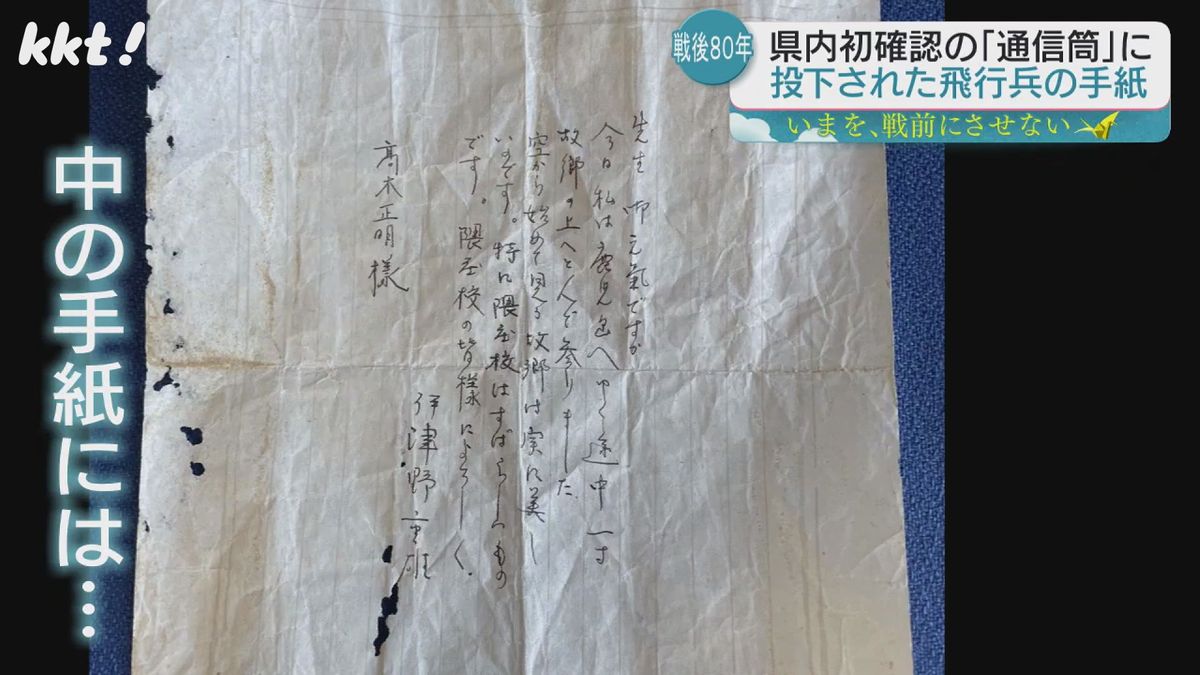 kkt!
戦後80年
県内初確認の「通信筒」に
投下された飛行兵の手紙
いまを、戦前にさせない
中の手紙には…
先生 御元氣ですか
今日 私は鹿児島へゆく途中一寸
故郷の上へとんで参りました
空から始めて見る故郷は実に美し
いです。特に隈庄校はすばらしいもの
です。隈庄校の皆様によろしく.
伊津野重雄
髙木正明様